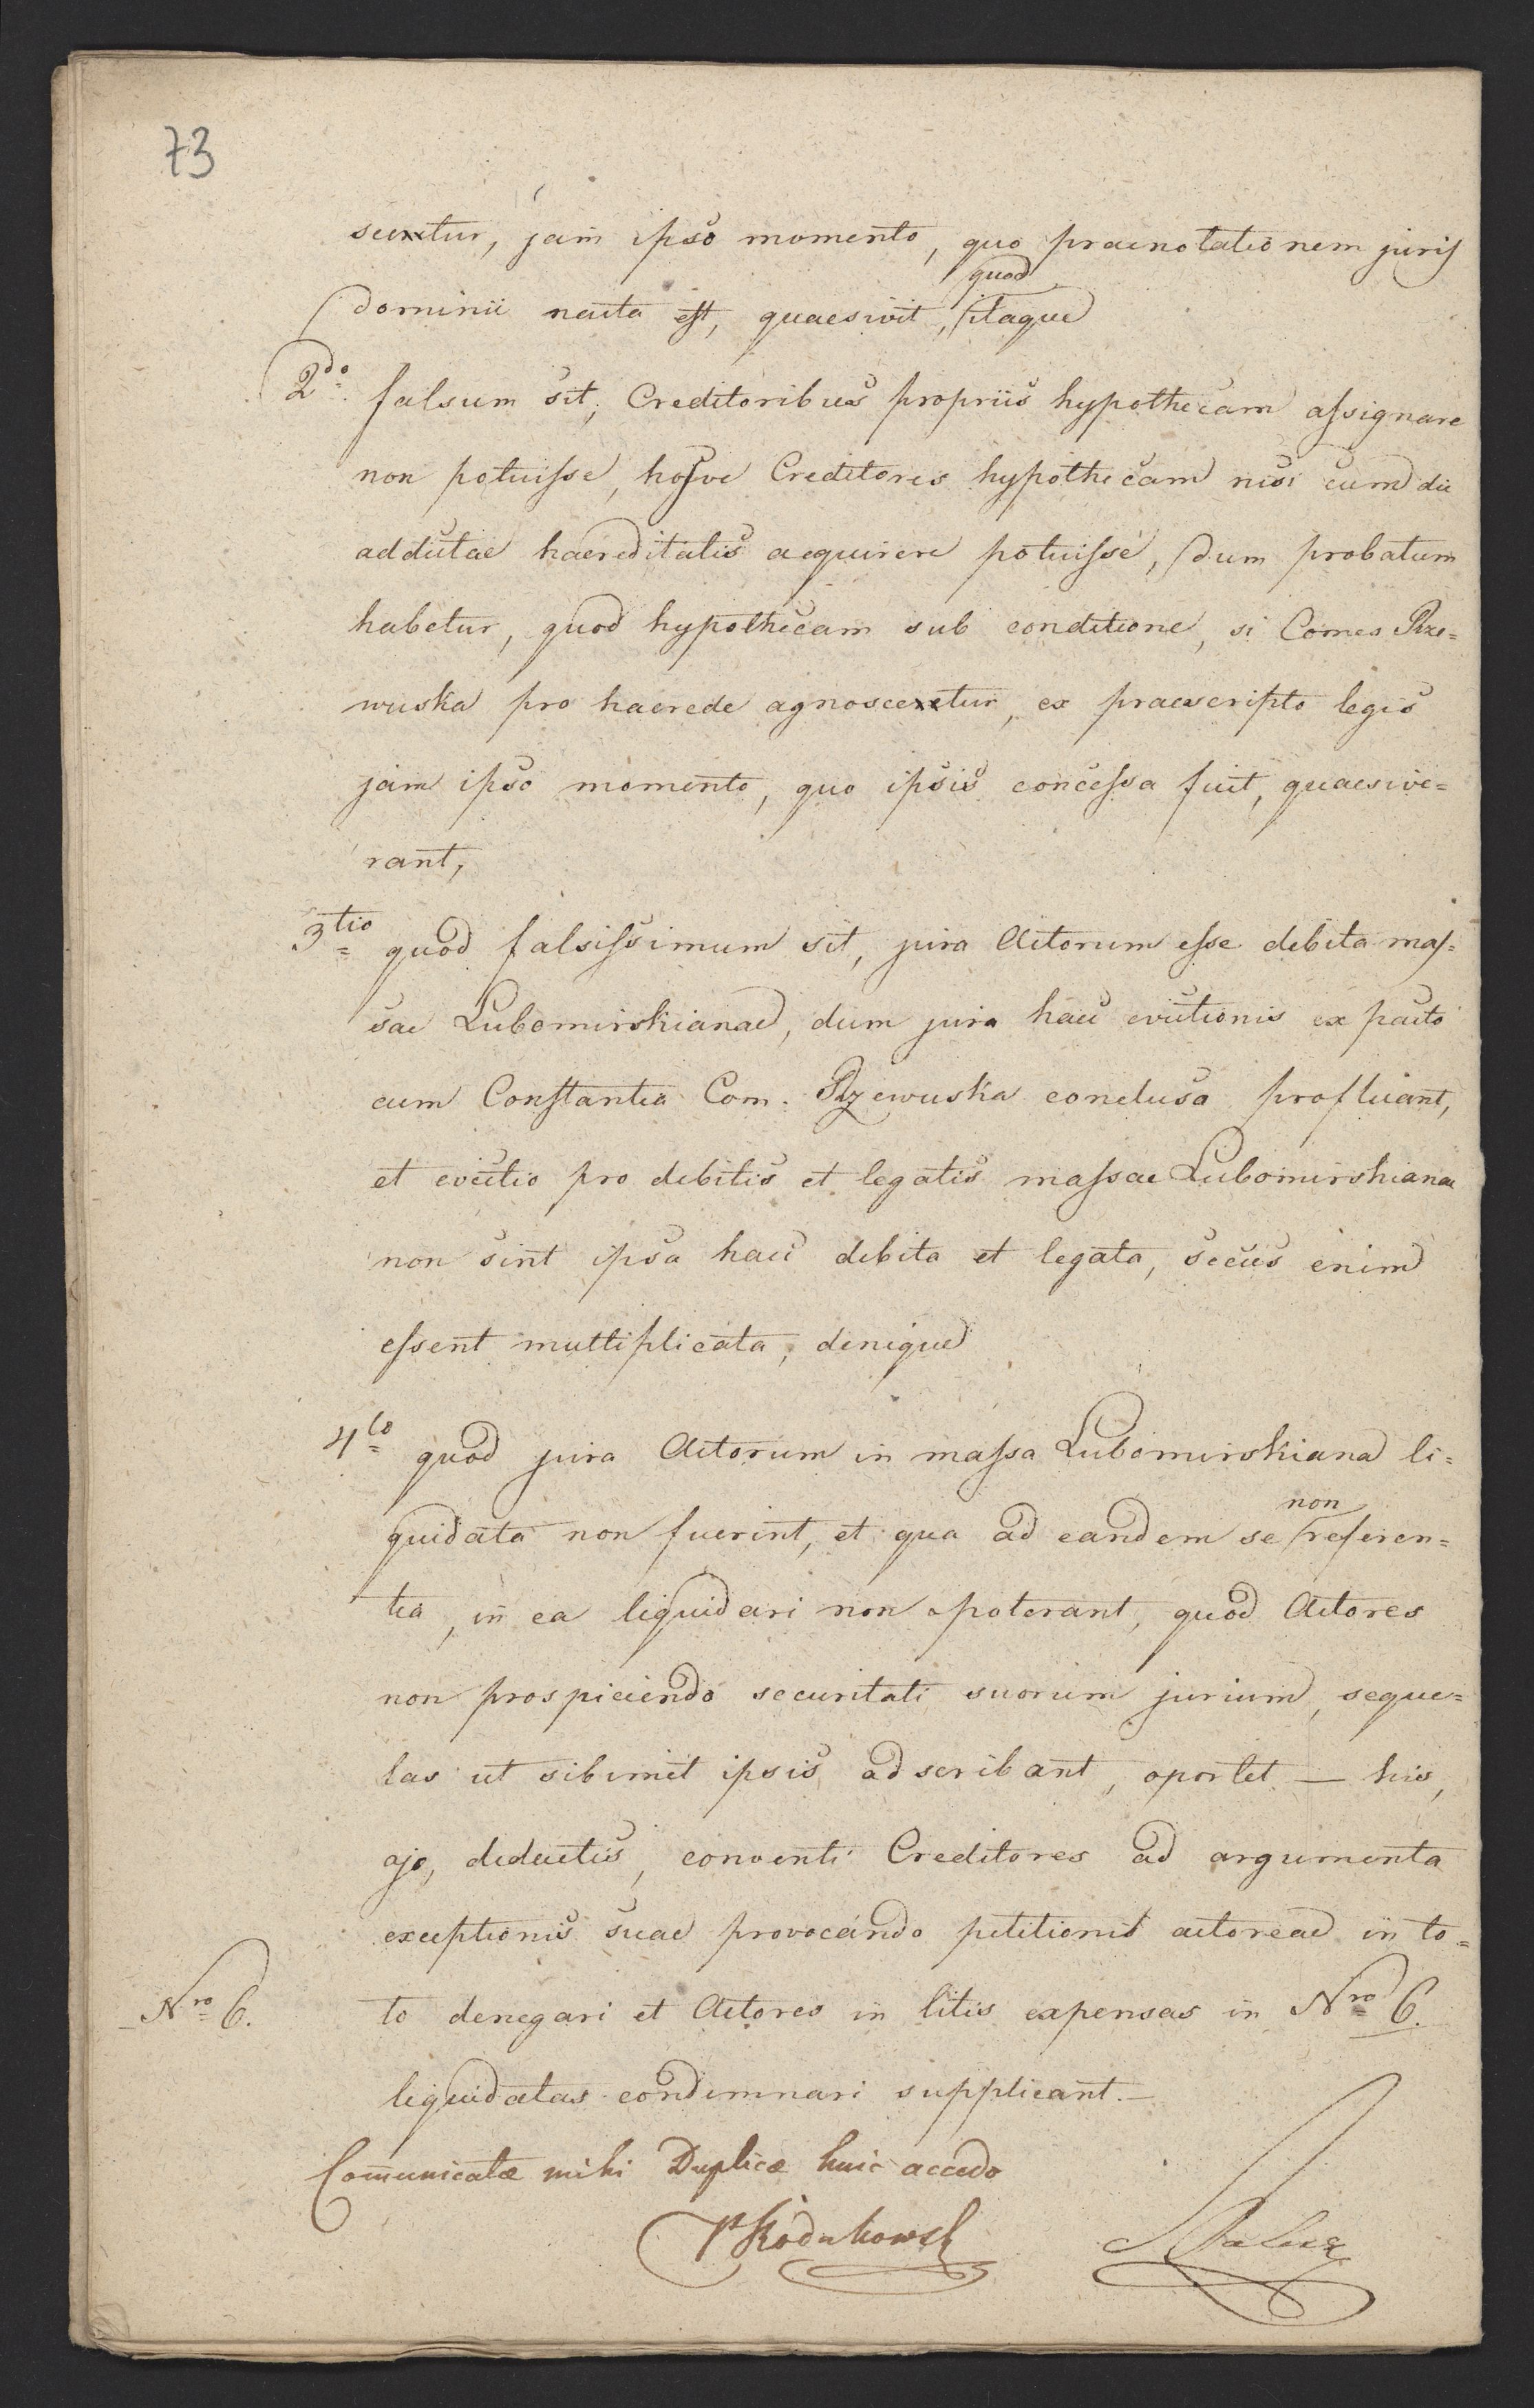 73
scetur, jam ipso momento, quo praenotationem juris
quod
dominii nacta est, quaesivit, itaque
2do falsum sit, Creditoribus propriis hypothecam assignare
non potuisse, hosve Creditores hypothecam nisi cum die
addictae haereditatis acquirere potuisse, dum probatum
habetur, quod hypothecam sub conditione, si Comes Rze=
wuska pro haerede agnoscetur, ex praescripto legis
jam ipso momento, quo ipsis concessa fuit, quaesive=
rant,
3tio quod falsissimum sit, jura Actorum esse debita mas=
sae Lubomirskianae, dum jura haec evictionis ex pacto
cum Constantia Com. Rzewuska concluso profluant,
et evictio pro debitis et legatis massae Lubomirskianae
non sint ipsa haec debita et legata, secus enim
essent multiplicata, denique
4to quod jura Actorum in massa Lubomirskiana li=
non
quidata non fuerint, et qua ad eandem se referen=
tia, in ea liquidari non poterant, quod Actores
non prospiciendo securitati suorum jurium, seque=
las ut sibimet ipsis adscribant, oportet — his,
ajo, deductis, conventi Creditores ad argumenta
exceptionis suae provocando petitionis actoreae in to=
Nro 6. to denegari et Actores in litis expensas in Nro 6.
liquidatas condemnari supplicant.—
Comunicatæ mihi Duplicæ huic accedo